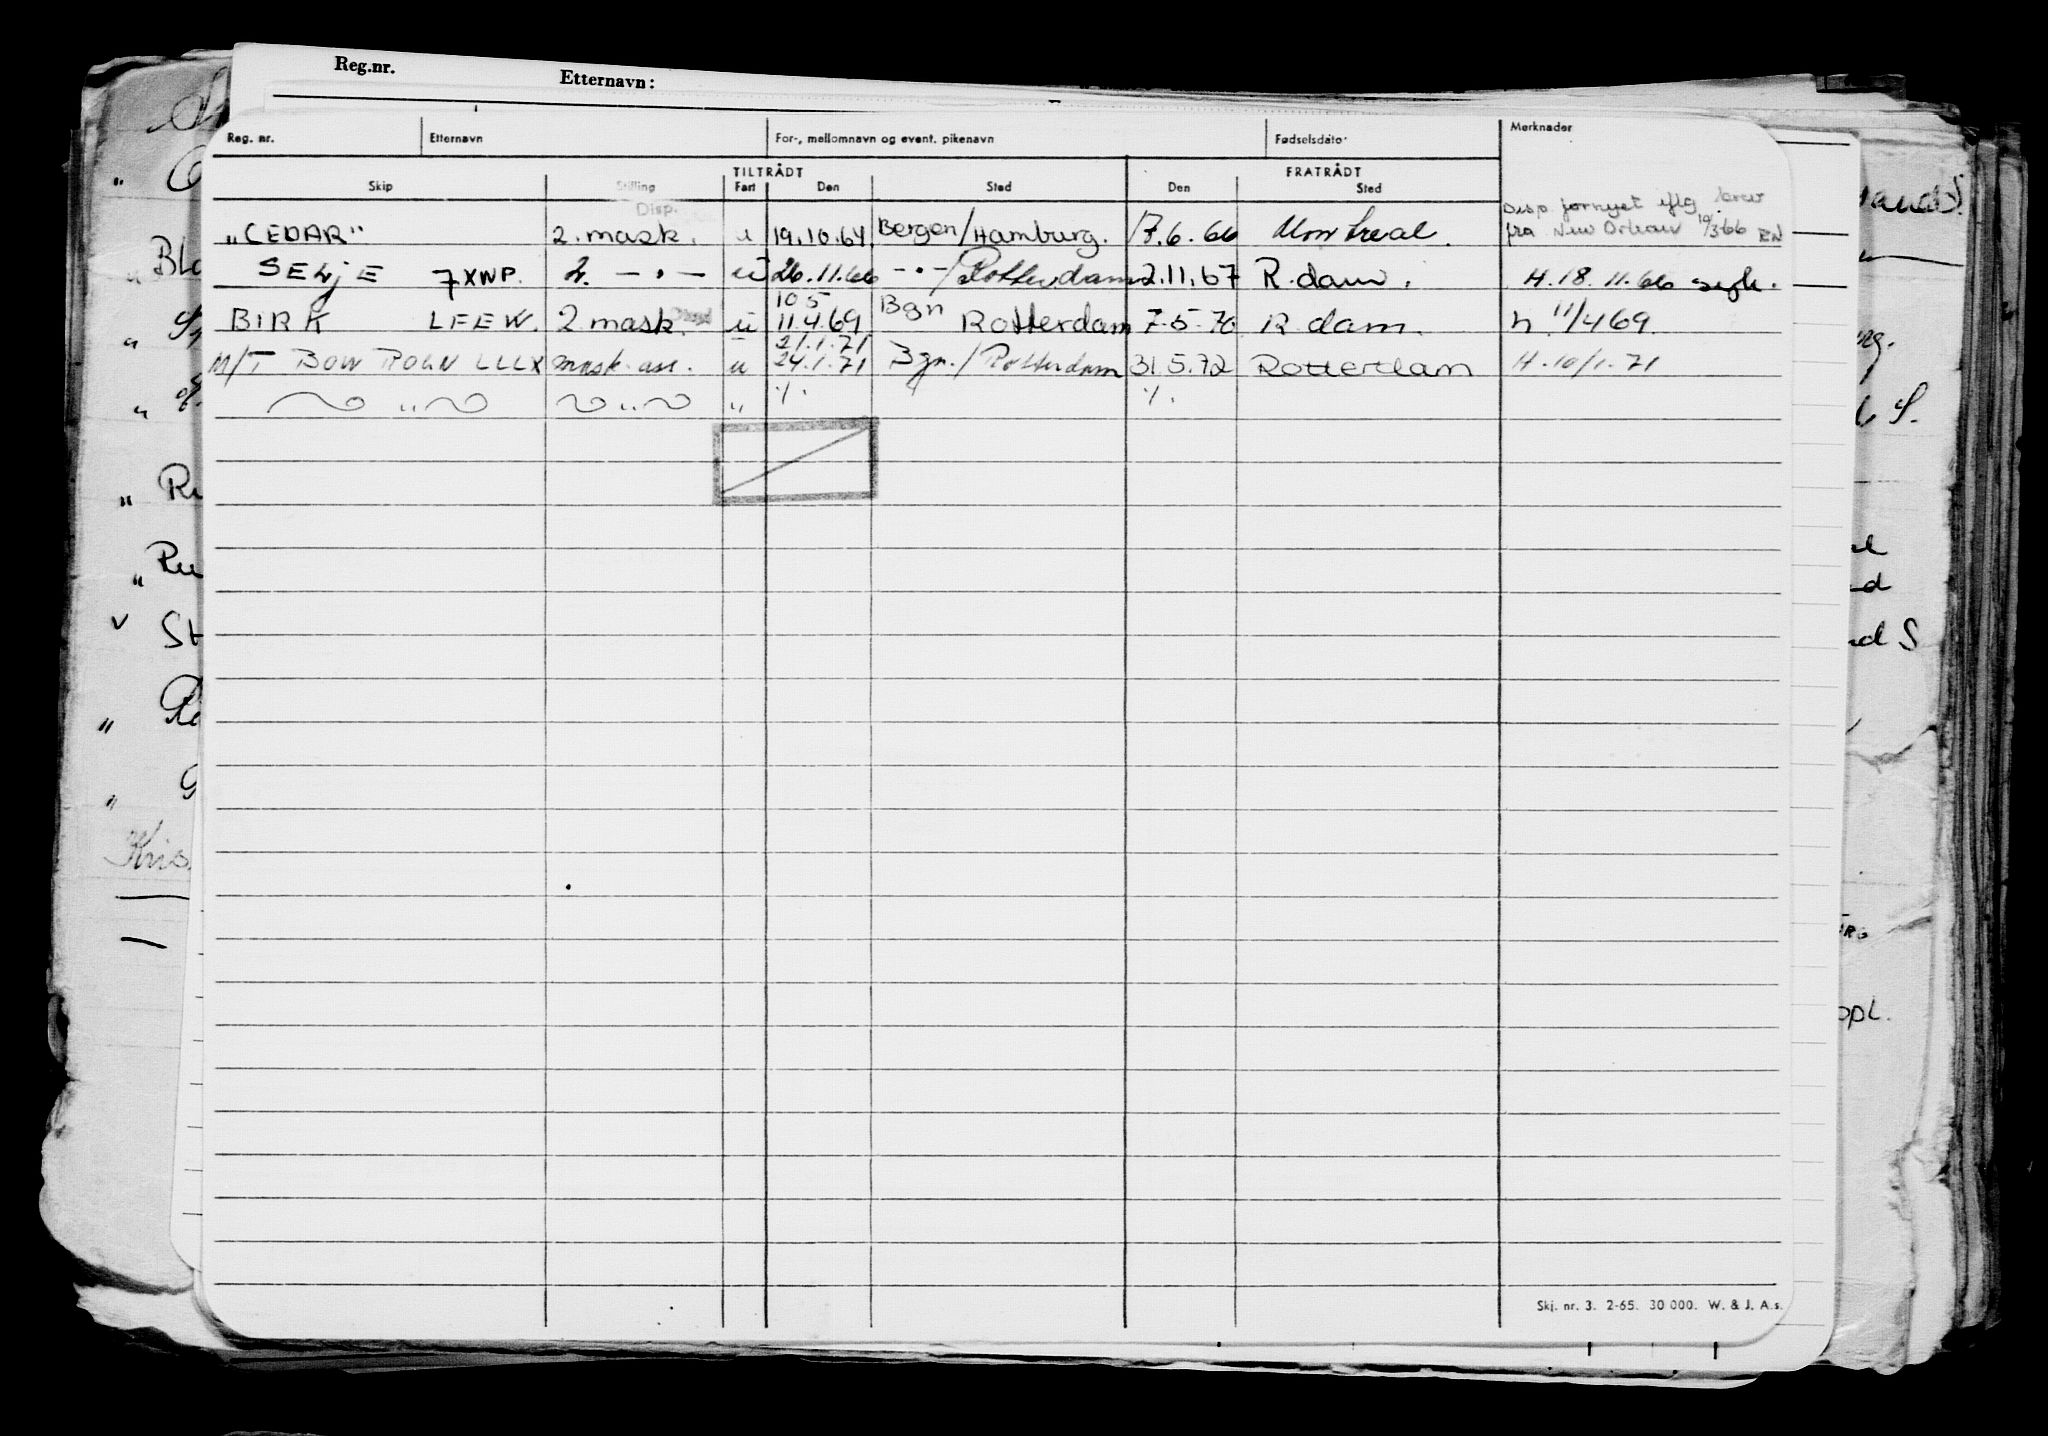 Reg.nr. Etternavn:
Reg. nr. Etternavn For-, mellomnavn og event. pikenavn Fødselsdato Merknader
TILTRÅDT FRATRÅDT
Skip Stilling Fart Den Sted Den Sted
Disp. Disp. fornyet iflg brev
"CEDAR" 2. mask. u 19.10.64. Bergen/Hamburg. 17.6.66 Montreal. fra New Orleans 10/3-66 EN
SELJE 7XWP. 2. — . — u 26.11.66 - . - /Rotterdam 2.11.67 R.dam. H. 18.11.66 sejk.
10 5 Bgn
BIRK LFEW. 2 mask. Disp u 11.4.69 Rotterdam 7.5.70 R dam. h 11/4 69.
21.1.71
M/T BOW ROGN LLLX mask. ass. u 24.1.71 Bgn./Rotterdam 31.5.72 Rotterdam H. 10/1.71
" " " /. /.
Skj. nr. 3. 2-65. 30 000. W. & J. A.s.